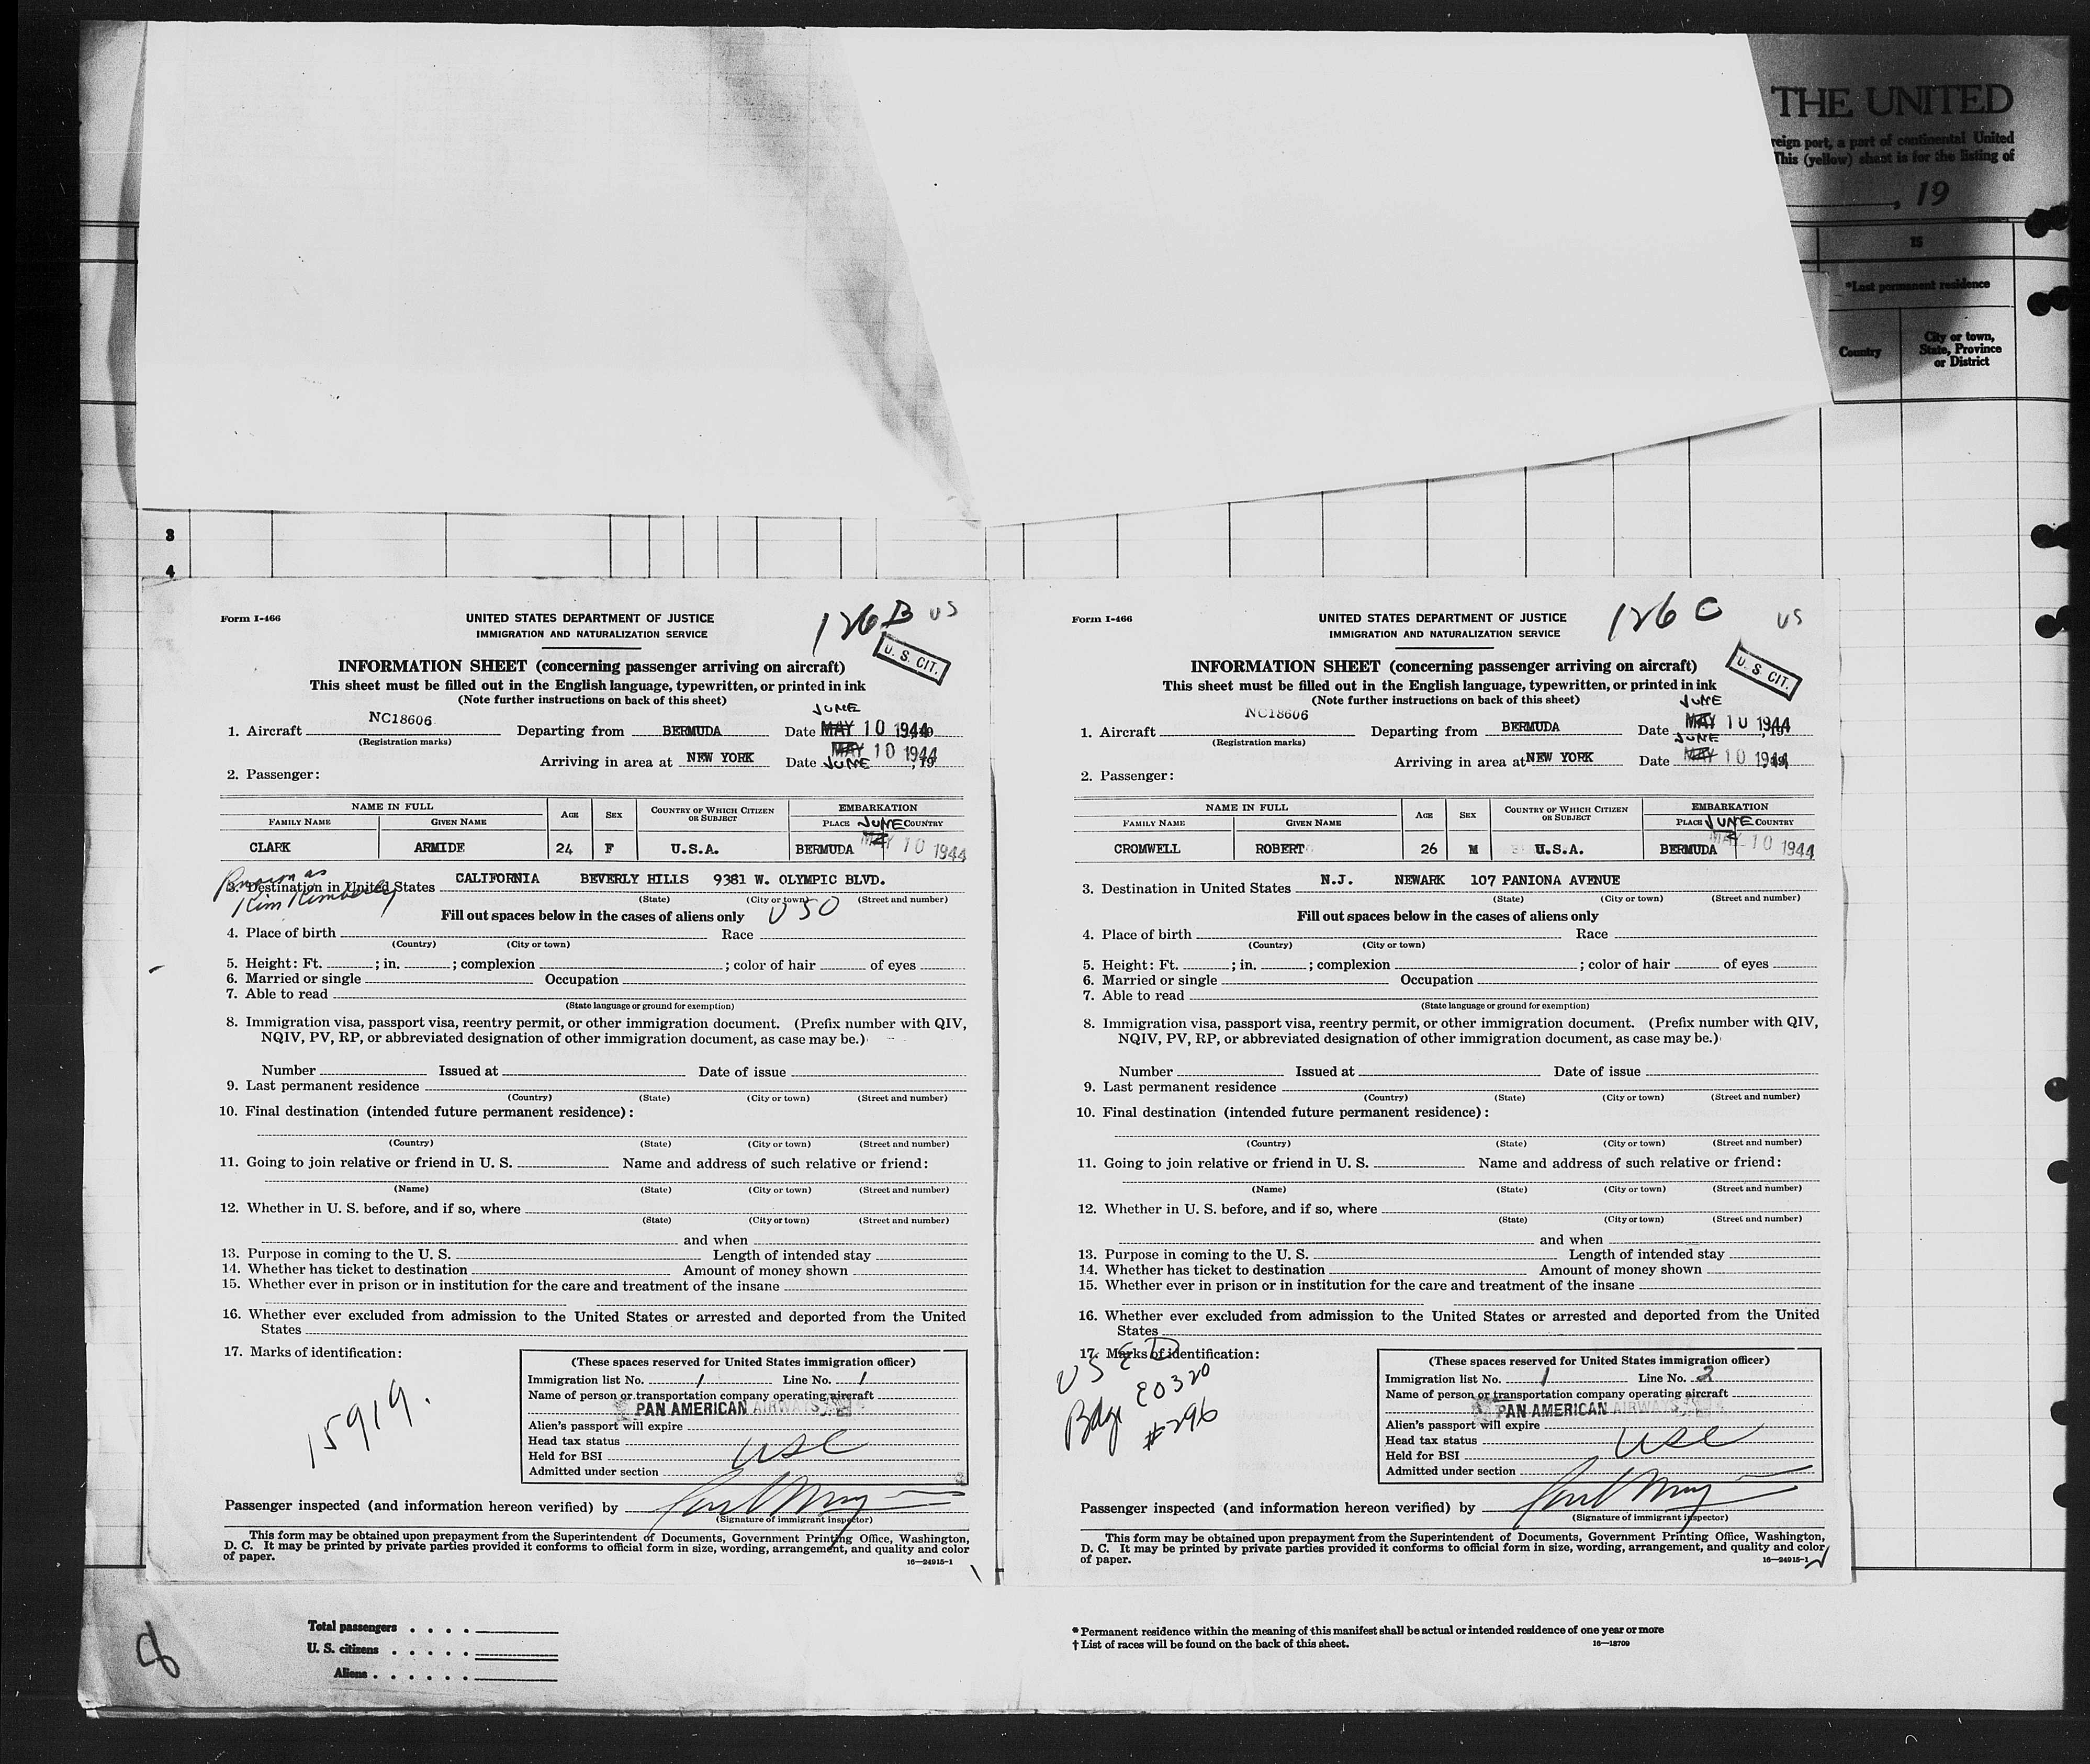 THE UNITED
reign port, a part of continental United
This (yellow) sheet is for the listing of
, 19
15
*Last permanent residence
Country
City or town,
State, Province
or District
3
4
Form I-466
UNITED STATES DEPARTMENT OF JUSTICE
IMMIGRATION AND NATURALIZATION SERVICE
126 B US
U. S. CIT.
INFORMATION SHEET (concerning passenger arriving on aircraft)
This sheet must be filled out in the English language, typewritten, or printed in ink
(Note further instructions on back of this sheet)
JUNE
1. Aircraft NC18606 Departing from BERMUDA Date MAY 10 1944
(Registration marks)
Arriving in area at NEW YORK Date MAY 10 1944, 19
JUNE
2. Passenger:
NAME IN FULL
FAMILY NAME GIVEN NAME AGE SEX COUNTRY OF WHICH CITIZEN OR SUBJECT EMBARKATION
PLACE JUNE COUNTRY
CLARK ARMIDE 24 F U.S.A. BERMUDA MAY 10 1944
Known as
Kim Kimberly
3. Destination in United States CALIFORNIA BEVERLY HILLS 9381 W. OLYMPIC BLVD.
(State) (City or town) (Street and number)
USO
Fill out spaces below in the cases of aliens only
4. Place of birth Race
(Country) (City or town)
5. Height: Ft. ; in. ; complexion ; color of hair of eyes
6. Married or single Occupation
7. Able to read
(State language or ground for exemption)
8. Immigration visa, passport visa, reentry permit, or other immigration document. (Prefix number with QIV,
NQIV, PV, RP, or abbreviated designation of other immigration document, as case may be.)
Number Issued at Date of issue
9. Last permanent residence
(Country) (State) (City or town) (Street and number)
10. Final destination (intended future permanent residence):
(Country) (State) (City or town) (Street and number)
11. Going to join relative or friend in U. S. Name and address of such relative or friend:
(Name) (State) (City or town) (Street and number)
12. Whether in U. S. before, and if so, where
(State) (City or town) (Street and number)
and when
13. Purpose in coming to the U. S. Length of intended stay
14. Whether has ticket to destination Amount of money shown
15. Whether ever in prison or in institution for the care and treatment of the insane
16. Whether ever excluded from admission to the United States or arrested and deported from the United
States
17. Marks of identification:
15919.
(These spaces reserved for United States immigration officer)
Immigration list No. 1 Line No. 1
Name of person or transportation company operating aircraft
PAN AMERICAN AIRWAYS
Alien's passport will expire
Head tax status
USC
Held for BSI
Admitted under section
Passenger inspected (and information hereon verified) by
(Signature of immigrant inspector)
This form may be obtained upon prepayment from the Superintendent of Documents, Government Printing Office, Washington,
D. C. It may be printed by private parties provided it conforms to official form in size, wording, arrangement, and quality and color
of paper.
16—24915-1
Form I-466
UNITED STATES DEPARTMENT OF JUSTICE
IMMIGRATION AND NATURALIZATION SERVICE
126 C US
U. S. CIT.
INFORMATION SHEET (concerning passenger arriving on aircraft)
This sheet must be filled out in the English language, typewritten, or printed in ink
(Note further instructions on back of this sheet)
JUNE
1. Aircraft NC18606 Departing from BERMUDA Date MAY 10 1944, 19
(Registration marks)
JUNE
Arriving in area at NEW YORK Date MAY 10 1944
2. Passenger:
NAME IN FULL
FAMILY NAME GIVEN NAME AGE SEX COUNTRY OF WHICH CITIZEN OR SUBJECT EMBARKATION
PLACE JUNE COUNTRY
CROMWELL ROBERT 26 M U.S.A. BERMUDA MAY 10 1944
3. Destination in United States N.J. NEWARK 107 PANIONA AVENUE
(State) (City or town) (Street and number)
Fill out spaces below in the cases of aliens only
4. Place of birth Race
(Country) (City or town)
5. Height: Ft. ; in. ; complexion ; color of hair of eyes
6. Married or single Occupation
7. Able to read
(State language or ground for exemption)
8. Immigration visa, passport visa, reentry permit, or other immigration document. (Prefix number with QIV,
NQIV, PV, RP, or abbreviated designation of other immigration document, as case may be.)
Number Issued at Date of issue
9. Last permanent residence
(Country) (State) (City or town) (Street and number)
10. Final destination (intended future permanent residence):
(Country) (State) (City or town) (Street and number)
11. Going to join relative or friend in U. S. Name and address of such relative or friend:
(Name) (State) (City or town) (Street and number)
12. Whether in U. S. before, and if so, where
(State) (City or town) (Street and number)
and when
13. Purpose in coming to the U. S. Length of intended stay
14. Whether has ticket to destination Amount of money shown
15. Whether ever in prison or in institution for the care and treatment of the insane
16. Whether ever excluded from admission to the United States or arrested and deported from the United
States
17. Marks of identification:
USED
Bdge 20320
#296
(These spaces reserved for United States immigration officer)
Immigration list No. 1 Line No. 2
Name of person or transportation company operating aircraft
PAN AMERICAN AIRWAYS
Alien's passport will expire
Head tax status
USC
Held for BSI
Admitted under section
Passenger inspected (and information hereon verified) by
(Signature of immigrant inspector)
This form may be obtained upon prepayment from the Superintendent of Documents, Government Printing Office, Washington,
D. C. It may be printed by private parties provided it conforms to official form in size, wording, arrangement, and quality and color
of paper.
16—24915-1
8
Total passengers
U. S. citizens
Aliens
* Permanent residence within the meaning of this manifest shall be actual or intended residence of one year or more
† List of races will be found on the back of this sheet.
16—18709